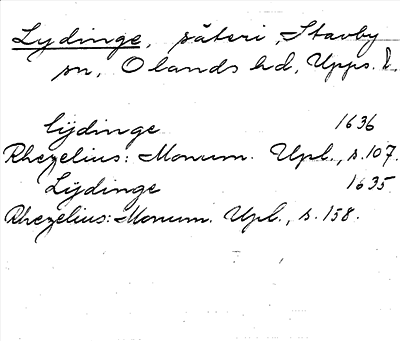 Lydinge, säteri, Stavby
sn, Olands hd, Upps. l.
lijdinge 1636
Rhezelius: Monum. Upl., s. 107.
Lijdinge 1635
Rhezelius: Monum. Upl., s. 158.